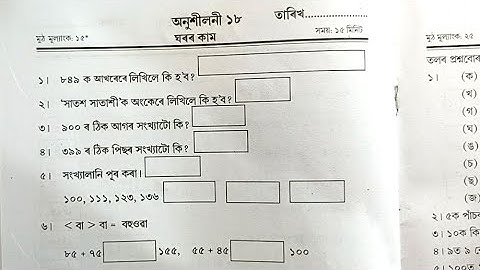 অনুশীলনী ১৮ তাৰিখ
মুঠ মূল্যাংক: ১৫* ঘৰৰ কাম সময়: ১৫ মিনিট
১। ৮৪৯ ক আখৰেৰে লিখিলে কি হ'ব?
২। 'সাতশ সাতাশী'ক অংকেৰে লিখিলে কি হ'ব?
৩। ৯০০ ৰ ঠিক আগৰ সংখ্যাটো কি?
৪। ৩৯৯ ৰ ঠিক পিছৰ সংখ্যাটো কি?
৫। সংখ্যালানি পূৰ কৰা।
১০০, ১১১, ১২৩, ১৩৬
৬। < বা > বা = বহুওৱা
৮৫ + ৭৫ ১৫৫, ৫৫ + ৪৫ ১০০
মুঠ মূল্যাংক: ২৫
তলৰ প্ৰশ্নবোৰ
১। (ক)
(খ)
(গ)
(ঘ)
(ঙ)
(চ)
(ছ)
(জ)
২। ৫ক পাঁচব
৩। ১০ক কি
৪। ৯ত ৯
৫। ১০০ত